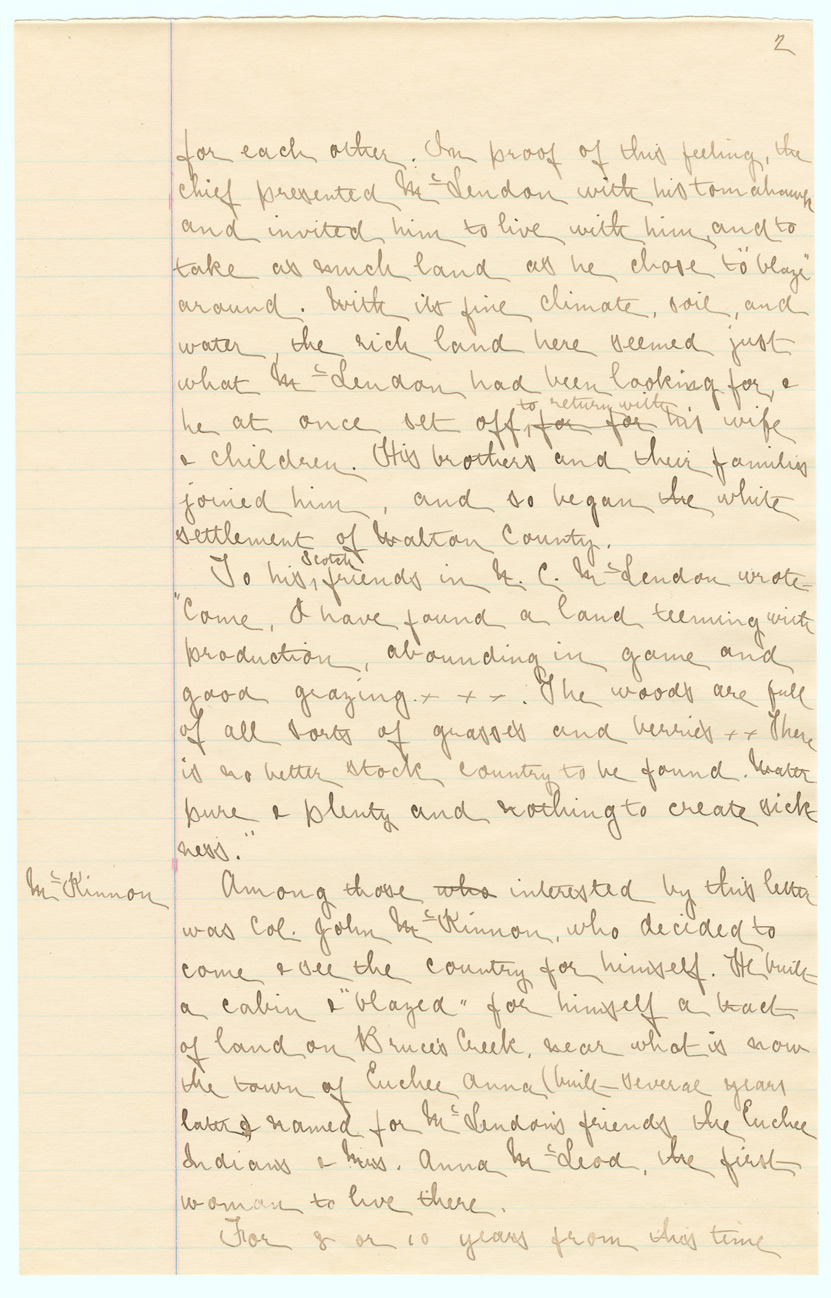 2
for each other. In proof of this feeling, the
chief presented McLendon with his tomahawk
and invited him to live with him, and to
take as much land as he chose to "blaze"
around. With its fine climate, soil, and
water, the rich land here seemed just
what McLendon had been looking for, &
to return with
he at once set off, for for his wife
& children. His brothers and their families
joined him, and so began the white
settlement of Walton County.
Scotch
To his friends in N. C. McLendon wrote–
"Come, I have found a land teeming with
production, abounding in game and
good grazing x x x. The woods are full
of all sorts of grasses and berries x x There
is no better stock country to be found. Water
pure & plenty and nothing to create sick
ness."
McKinnon
Among those who interested by this letter
was Col. John McKinnon, who decided to
come & see the country for himself. He built
a cabin & "blazed" for himself a tract
of land on Bruce's Creek, near what is now
the town of Euchee Anna (built several years
later & named for McLendon's friends the Euchee
Indians & Miss. Anna McLeod, the first
woman to live there.
For 8 or 10 years from this time